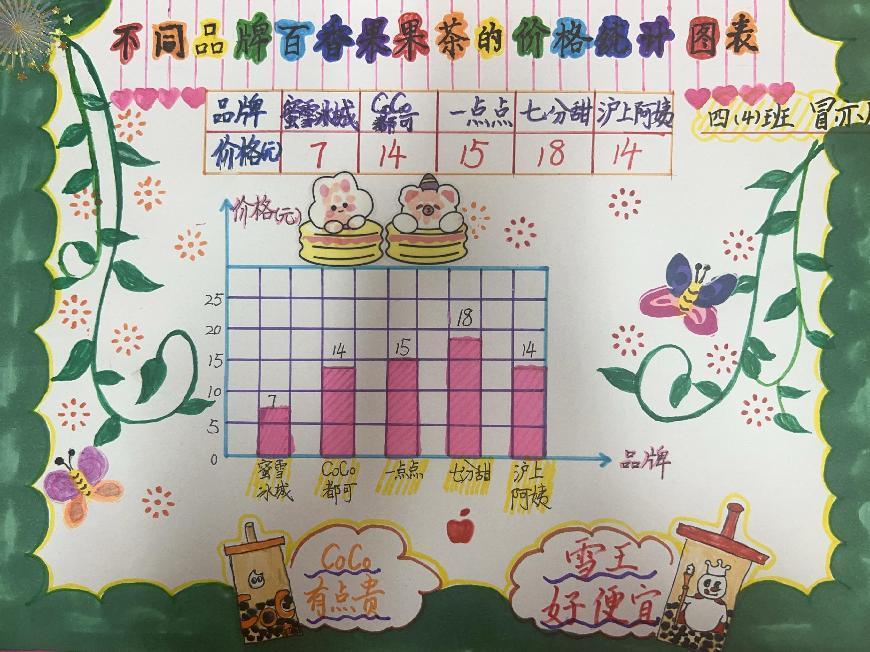 不同品牌百香果果茶的价格统计图表
四(4)班 冒亦
品牌 蜜雪冰城 CoCo都可 一点点 七分甜 沪上阿姨
价格(元) 7 14 15 18 14
价格(元)
25
20
15
10
5
0
7 14 15 18 14
蜜雪冰城 CoCo都可 一点点 七分甜 沪上阿姨
品牌
CoCo
有点贵
雪王
好便宜